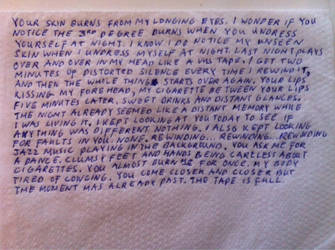 YOUR SKIN BURNS FROM MY LONGING EYES. I WONDER IF YOU
NOTICE THE 3RD DEGREE BURNS WHEN YOU UNDRESS
YOURSELF AT NIGHT. I KNOW I DO NOTICE MY UNSEEN
SKIN WHEN I UNDRESS MYSELF AT NIGHT. LAST NIGHT PLAYS
OVER AND OVER IN MY HEAD LIKE A VHS TAPE. I GET TWO
MINUTES OF DISTORTED SILENCE EVERY TIME I REWIND IT,
AND THEN THE WHOLE THING STARTS OVER AGAIN. YOUR LIPS
KISSING MY FOREHEAD, MY CIGARETTE BETWEEN YOUR LIPS
FIVE MINUTES LATER. SWEET DRINKS AND DISTANT GLANCES.
THE NIGHT ALREADY SEEMED LIKE A DISTANT MEMORY WHILE
I WAS LIVING IT. I KEPT LOOKING AT YOU TODAY TO SEE IF
ANYTHING WAS DIFFERENT. NOTHING. I ALSO KEPT LOOKING
FOR FAULTS IN YOU. NONE. REWINDING... REWINDING. REWINDING
JAZZ MUSIC PLAYING IN THE BACKGROUND. YOU ASK ME FOR
A DANCE. CLUMSY FEET AND HANDS BEING CARELESS ABOUT
CIGARETTES. YOU ALMOST BURN ME FOR ONCE. MY BODY
TIRED OF LONGING. YOU COME CLOSER AND CLOSER BUT
THE MOMENT HAS ALREADY PAST. THE TAPE IS FULL.